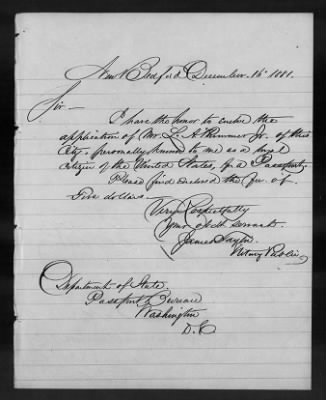 New Bedford December 16th 1881.
Sir —
I have the honor to enclose the
application of Mr. L. A. Plummer Jr. of this
City, personally known to me as a loyal
citizen of the United States, for a Passport.
Please find enclosed the fee of
Five dollars —
Very Respectfully
Your obt. servant.
James Taylor
Notary Public
Department of State
Passport Bureau
Washington
D.C